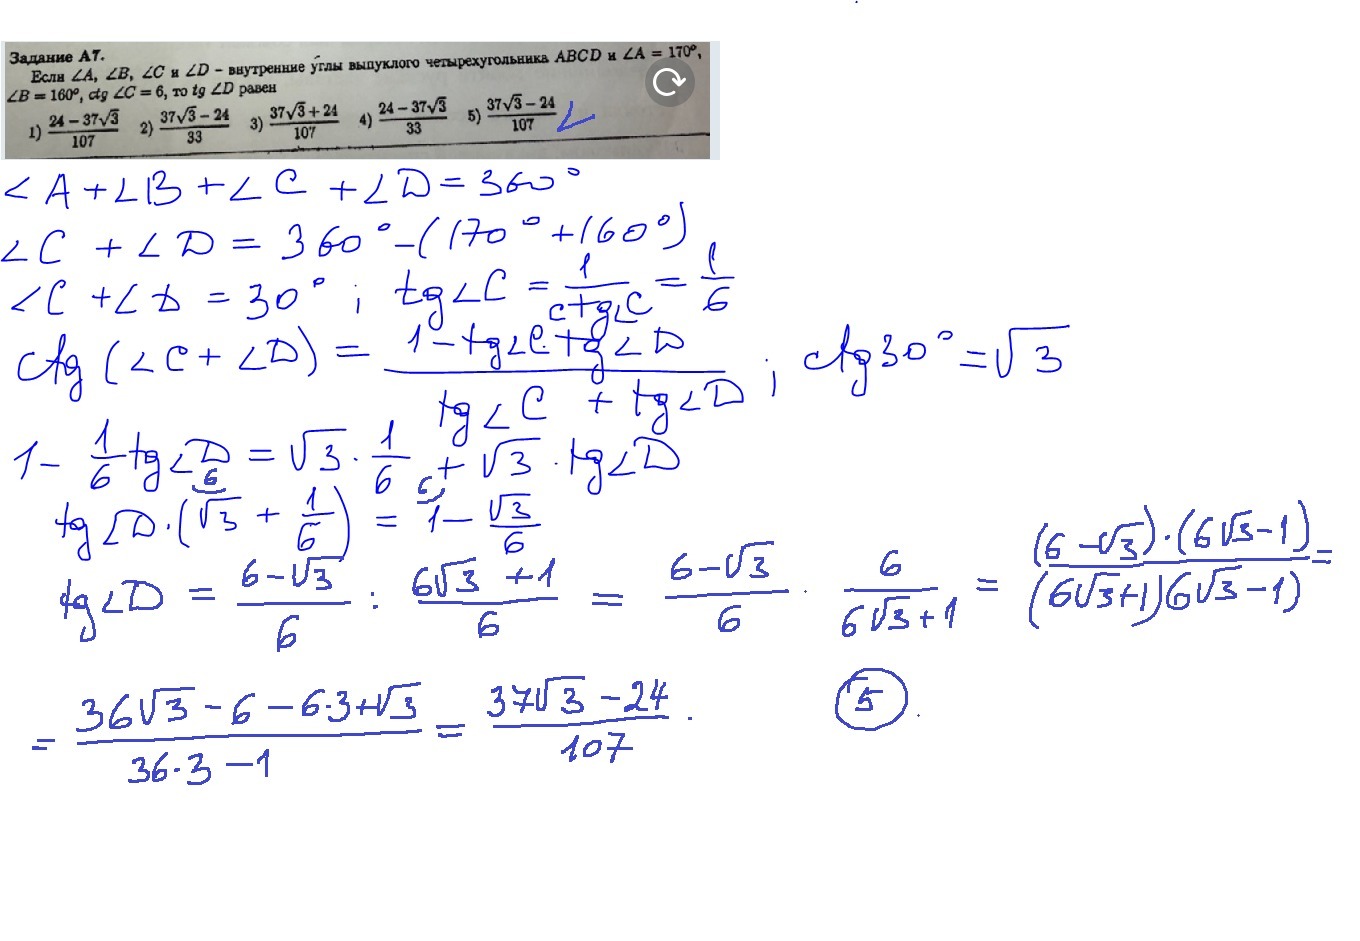 Задание А7.
Если ∠A, ∠B, ∠C и ∠D – внутренние углы выпуклого четырехугольника ABCD и ∠A = 170°,
∠B = 160°, ctg ∠C = 6, то tg ∠D равен
1) (24 − 37√3)/107 2) (37√3 − 24)/33 3) (37√3 + 24)/107 4) (24 − 37√3)/33 5) (37√3 − 24)/107
∠A + ∠B + ∠C + ∠D = 360°
∠C + ∠D = 360° − (170° + 160°)
∠C + ∠D = 30° ; tg∠C = 1/ctg∠C = 1/6
ctg (∠C + ∠D) = (1 − tg∠C · tg∠D)/(tg∠C + tg∠D) ; ctg 30° = √3
1 − 1/6 tg∠D = √3 · 1/6 + √3 · tg∠D
tg∠D · (√3 + 1/6) = 1 − √3/6
tg∠D = (6 − √3)/6 : (6√3 + 1)/6 = (6 − √3)/6 · 6/(6√3 + 1) = (6 − √3) · (6√3 − 1)/(6√3 + 1)(6√3 − 1) =
= (36√3 − 6 − 6·3 + √3)/(36·3 − 1) = (37√3 − 24)/107 . 5 .